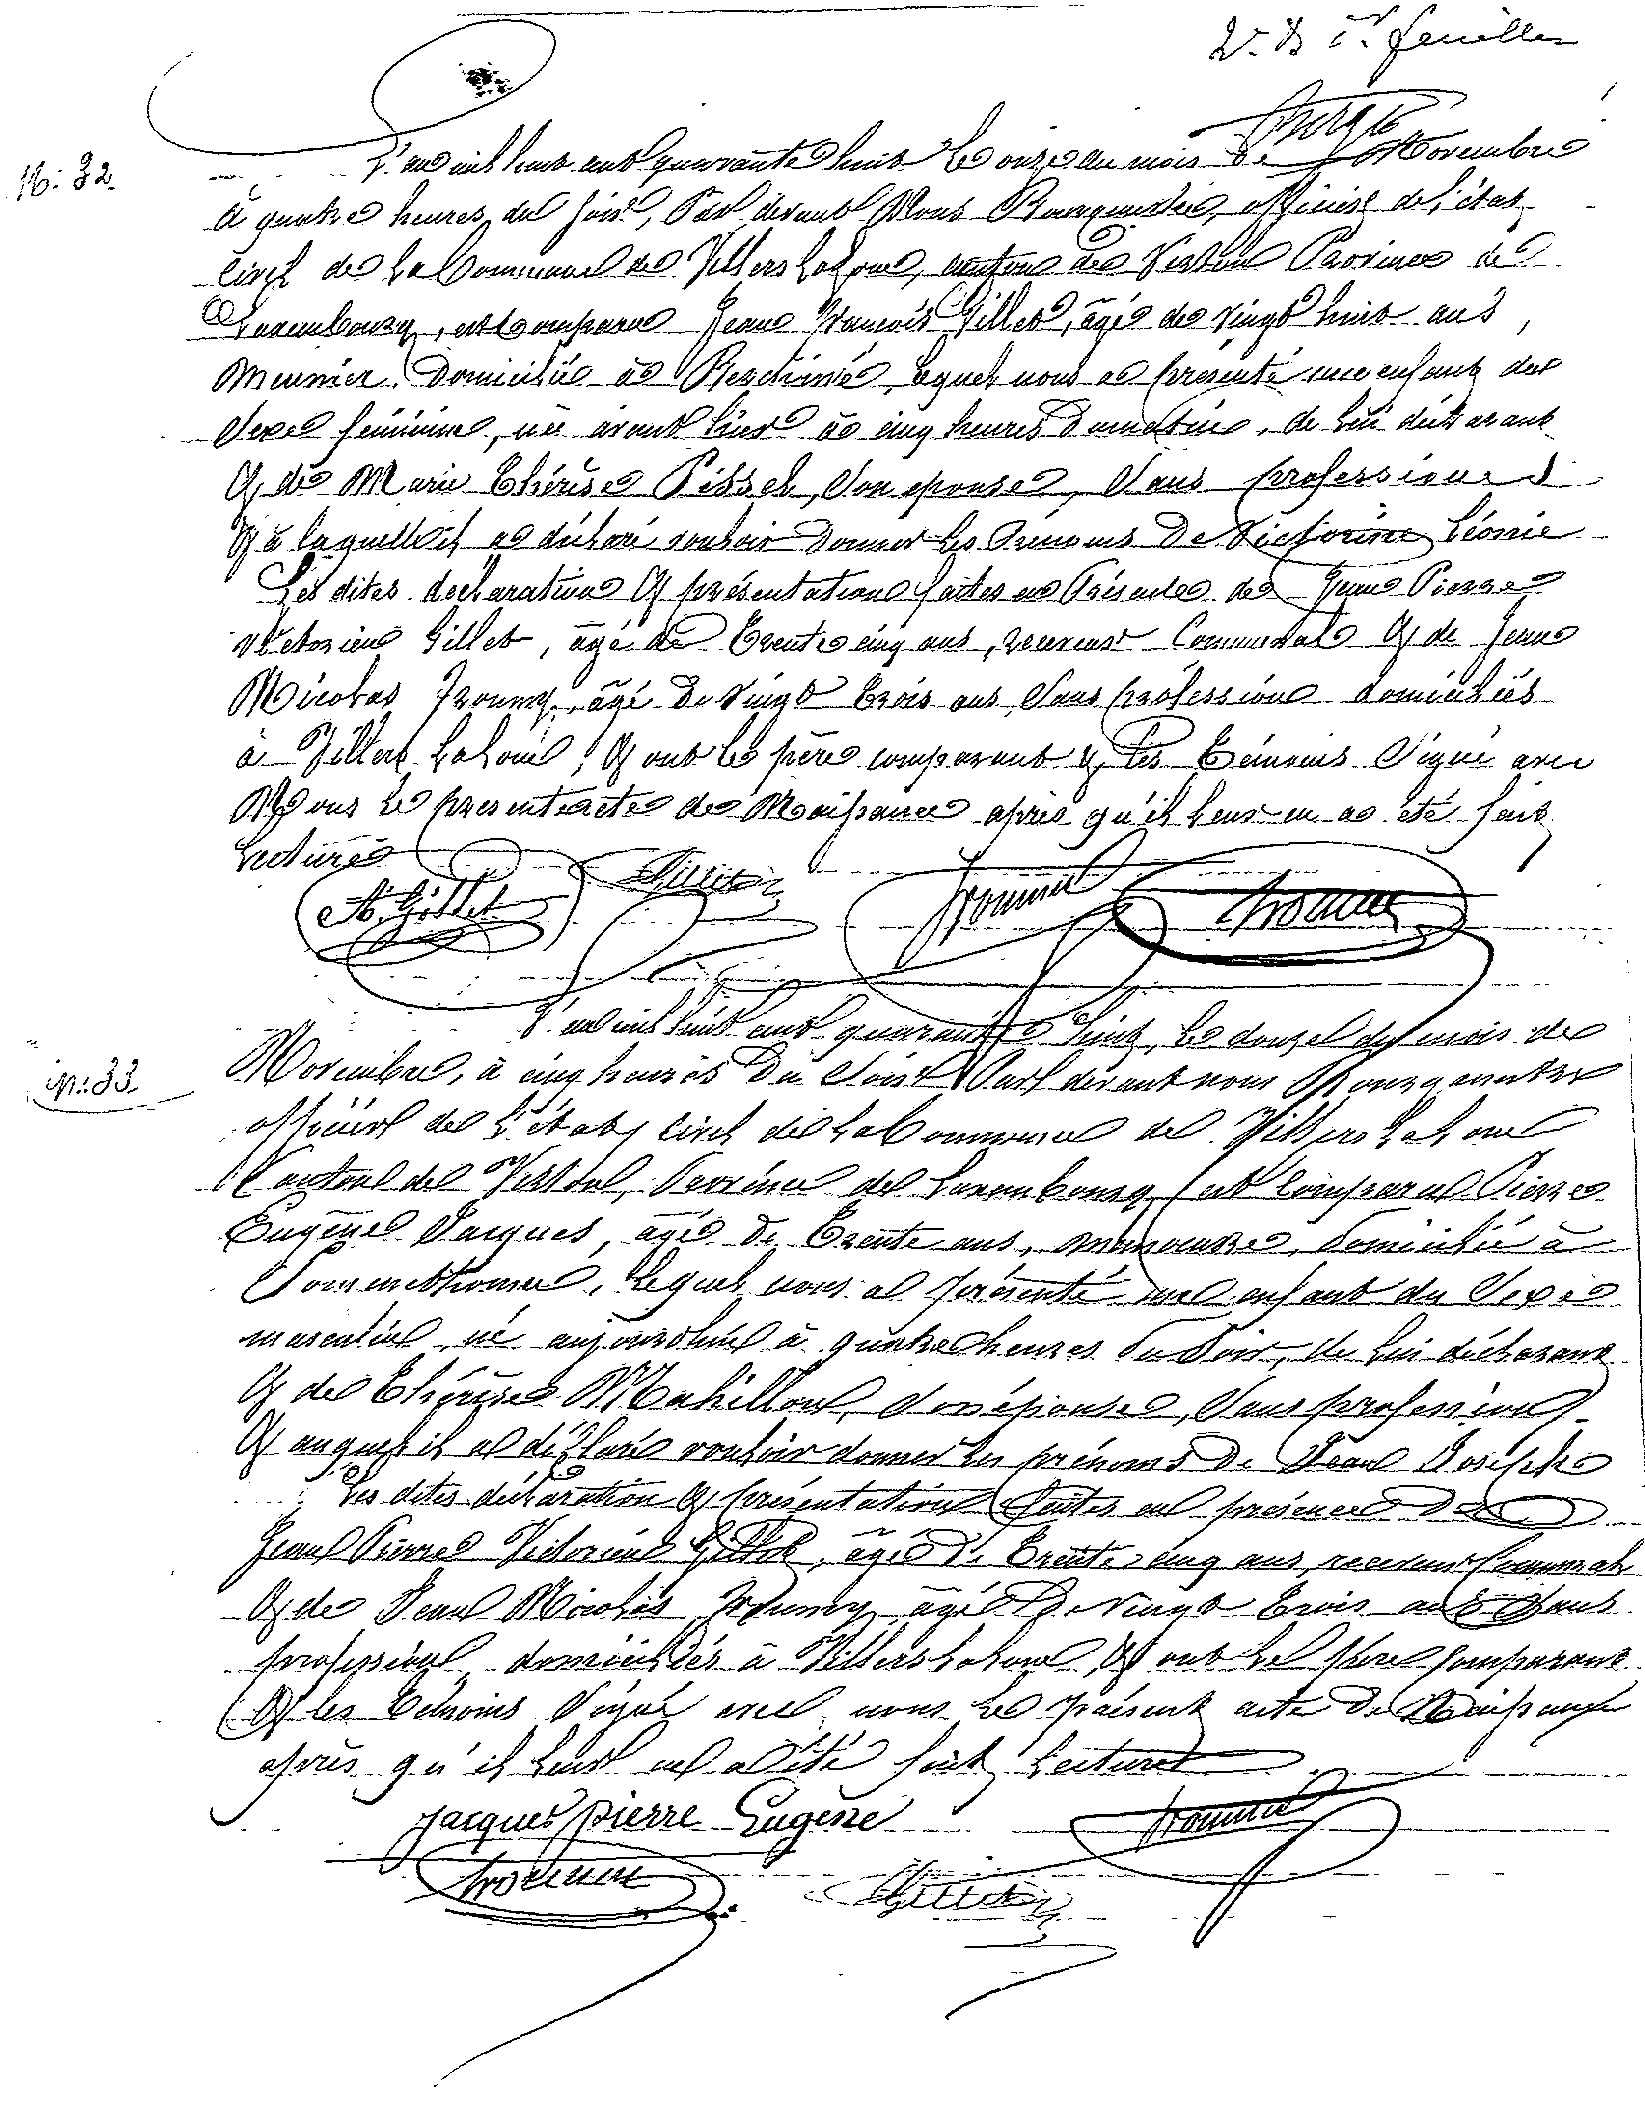 feuillet
N: 32
L'an mil huit cent quarante huit le onze du mois de Novembre
à quatre heures du soir, Par devant Nous Bourguemestre, officier de l'état
civil de la Commune de Villers Laloue, canton de Virton Province de
Luxembourg, est comparu Jean François Gillet, âgé de vingt huit ans,
Meunier, Domicilié à lequel nous a présenté une enfant du
Sexe féminin, née avant hier à cinq heures du matin, de lui déclarant
et de Marie Thérèse son épouse, Sans profession
et à laquelle il a déclaré vouloir donner les Prénoms de Victorine Léonie
Les dites déclaration et présentation faites en Présence de Jean Pierre
Victorien Gillet, âgé de Trente cinq ans, receveur Communal et de Jean
Nicolas âgé de vingt trois ans, Sans profession domiciliés
à Villers Laloue, et ont le père comparant et les Témoins Signé avec
Nous le présent acte de Naissance après qu'il leur en a été fait
lecture
Gillet
N: 33
L'an mil huit cent quarante huit, le douze du mois de
Novembre, à cinq heures du Soir Par devant nous Bourguemestre
officier de l'état civil de la Commune de Villers Laloue
Canton de Virton, Province de Luxembourg, est comparu Pierre
Eugène Jacques, âgé de Trente ans, manoeuvre, Domicilié à
Sommethonne, lequel nous a présenté un enfant du Sexe
masculin, né aujourd'hui à quatre heures du Soir, de lui déclarant
et de Thérèse Mahillon, Son épouse, Sans profession
et auquel il a déclaré vouloir donner les prénoms de Jean Joseph
Les dites déclaration et présentation faites en présence de
Jean Pierre Victorien Gillet, âgé de Trente cinq ans, receveur Communal
et de Jean Nicolas âgé de vingt trois ans Sans
profession, domiciliés à Villers Laloue, et ont le père comparant
et les Témoins Signé avec nous le présent acte de Naissance
après qu'il leur en a été fait lecture
Jacques pierre Eugène
Gillet